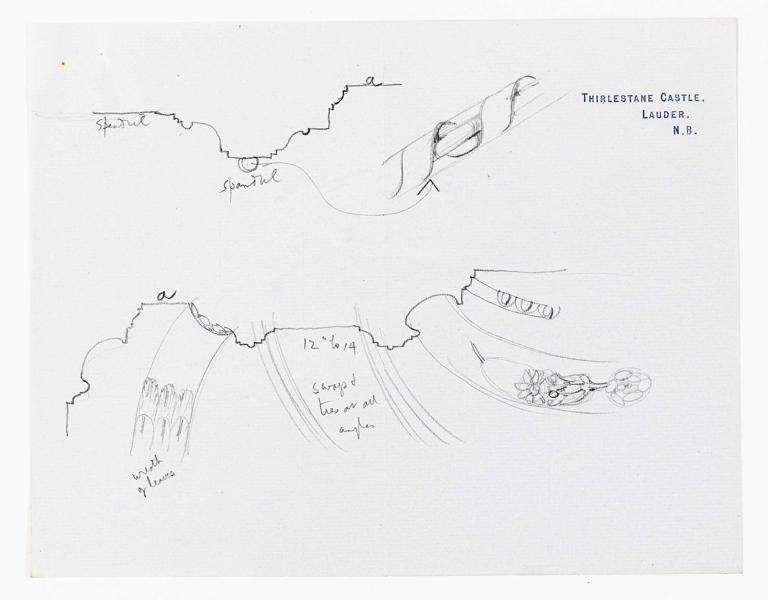 a
THIRLESTANE CASTLE,
LAUDER.
N.B.
spandril
spandril
a
12" to 14
swags &
ties at all
angles
wreath
of leaves